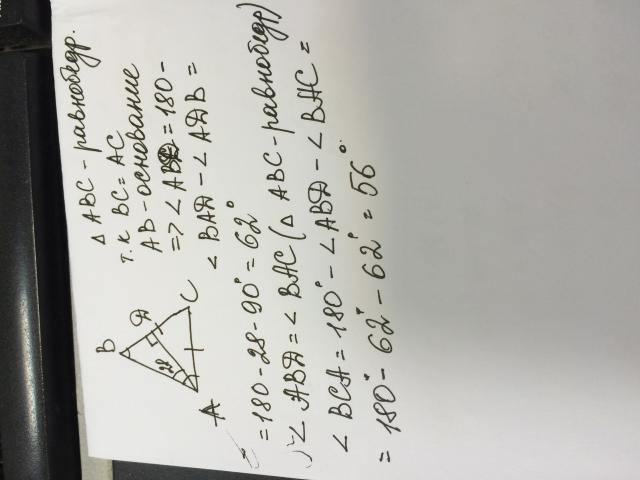 △ ABC - равнобедр.
т.к BC = AC
AB - основание
=> ∠ABD = 180 -
∠BAD - ∠ADB =
B
D
28
A
C
= 180 - 28 - 90° = 62°
∠ABD = ∠BAC (△ ABC - равнобедр)
∠BCA = 180° - ∠ABD - ∠BAC =
= 180° - 62° - 62° = 56°